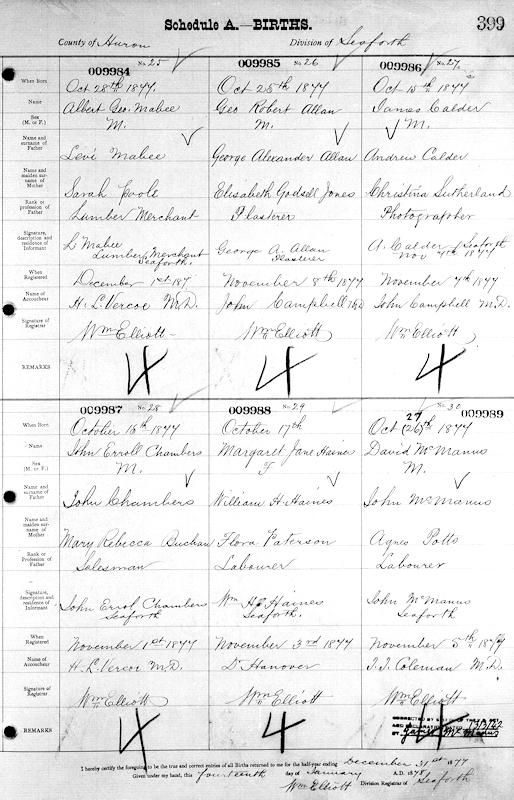 Schedule A.—BIRTHS. 399
County of Huron Division of Seaforth
009984 No. 25 009985 No. 26 009986 No. 27
When Born Oct 28th 1877 Oct 25th 1877 Oct 15th 1877
Name Albert Geo. Mabee Geo Robert Allan James Calder
Sex (M. or F.) M. M. M.
Name and surname of Father Levi Mabee George Alexander Allan Andrew Calder
Name and maiden surname of Mother Sarah Poole Elisabeth Godsell Jones Christina Sutherland
Rank or profession of Father Lumber Merchant Plasterer Photographer
Signature, description and residence of Informant L Mabee Lumber Merchant Seaforth George A. Allan Plasterer A. Calder Seaforth Nov 7th 1877
When Registered December 1st 187 November 8th 1877 November 7th 1877
Name of Accoucheur H. L. Vercoe M.D. John Campbell M.D. John Campbell M.D.
Signature of Registrar Wm Elliott Wm Elliott Wm Elliott
REMARKS 4 4 4
009987 No. 28 009988 No. 29 No. 30 009989
When Born October 16th 1877 October 17th Oct (26)th 27 1877
Name John Erroll Chambers Margaret Jane Haines David McManus
Sex (M. or F.) M. F M.
Name and surname of Father John Chambers William H. Haines John McManus
Name and maiden surname of Mother Mary Rebecca Buchan Flora Paterson Agnes Potts
Rank or Profession of Father Salesman Labourer Labourer
Signature, description and residence of Informant John Errol Chambers Seaforth Wm H. Haines Seaforth. John McManus Seaforth
When Registered November 1st 1877 November 3rd 1877 November 5th 1877
Name of Accoucheur H. L. Vercoe M.D. Dr Hanover T. T. Coleman M.D.
Signature of Registrar Wm Elliott Wm Elliott Wm Elliott
REMARKS 4 4 4
I hereby certify the foregoing to be the true and correct entries of all Births returned to me for the half-year ending December 31st 1877
Given under my hand, this fourteenth day of January A.D. 1878
Wm Elliott Division Registrar of Seaforth